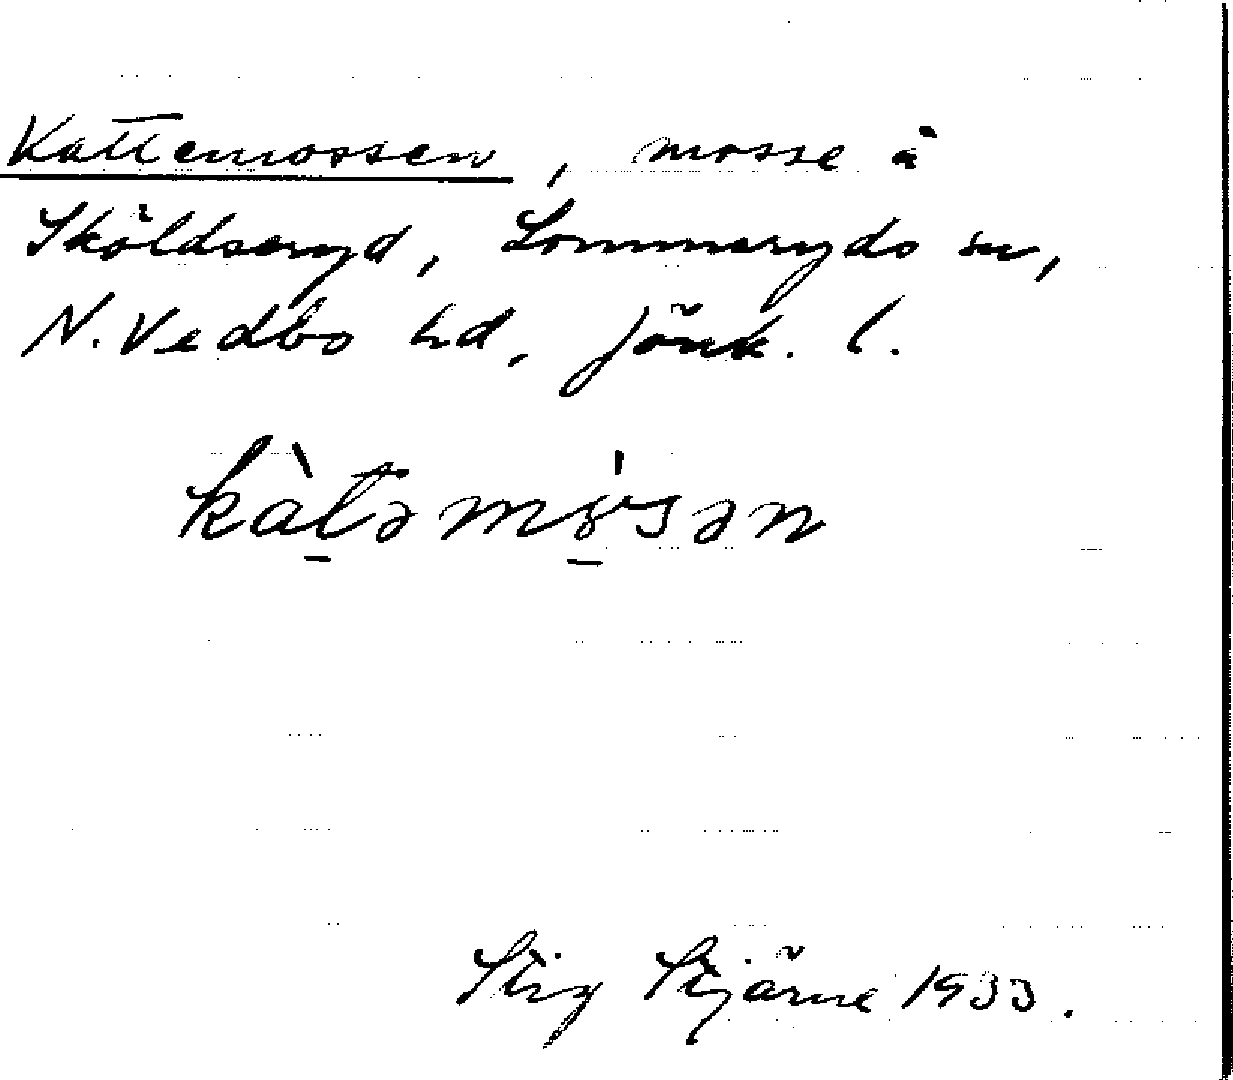 Kattemossen, mosse å
Sköldseryd, Lommaryds sn,
N. Vedbo hd, Jönk. l.
kàt̠əmɤ̠́sən
Stig Stjärne 1933.